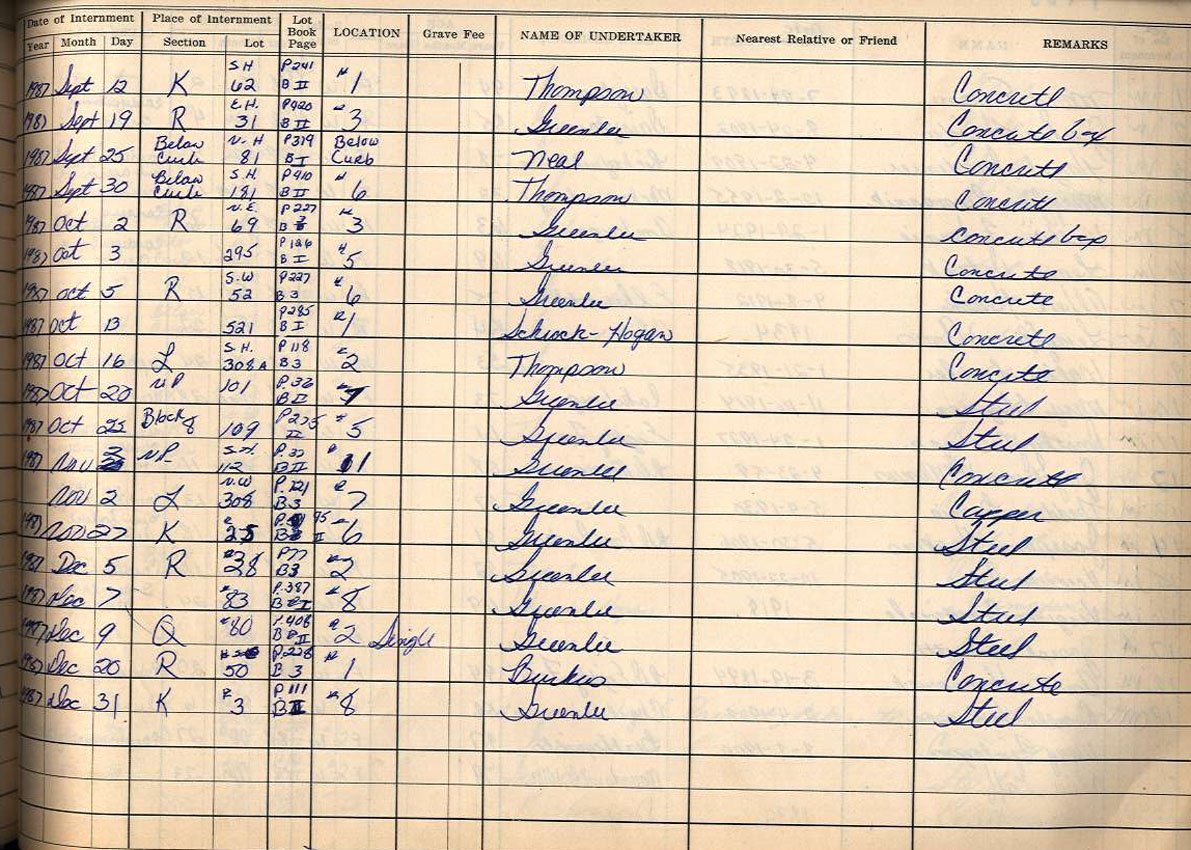 Date of Internment Place of Internment Lot Book Page LOCATION Grave Fee NAME OF UNDERTAKER Nearest Relative or Friend REMARKS
Year Month Day Section Lot
1987 Sept 12 K S.H. 62 P241 B II # 1 Thompson Concrete
1987 Sept 19 R E.H. 31 P420 B II # 3 Greenlee Concrete box
1987 Sept 25 Below Curb N-H 81 P319 B I Below Curb Neal Concrete
1987 Sept 30 Below Curb S.H. 181 P410 B II # 6 Thompson Concrete
1987 Oct 2 R N.E. 69 P227 B 3 # 3 Greenlee Concrete box
1987 Oct 3 295 P126 B I # 5 Greenlee Concrete
1987 Oct 5 R S.W 52 P227 B 3 # 6 Greenlee Concrete
1987 Oct 13 521 P285 B I # 1 Schrock-Hogan Concrete
1987 Oct 16 L S.H. 308A P118 B3 # 2 Thompson Concrete
1987 Oct 20 NP 101 P.32 B II # 7 Greenlee Steel
1987 Oct 25 Block 8 109 P275 II # 5 Greenlee Steel
1987 Nov 2 NP S.H. 112 P.33 B II # 1 Greenlee Concrete
Nov 2 L N.W 308 P.121 B3 # 7 Greenlee Copper
1987 Nov 27 K # 25 P. 95 B II # 6 Greenlee Steel
1987 Dec 5 R #28 P77 B3 # 2 Greenlee Steel
1987 Dec 7 # 83 P.387 B I # 8 Greenlee Steel
1987 Dec 9 Q #80 P.408 B II # 2 Single Greenlee Steel
1987 Dec 20 R 50 P.228 B 3 # 1 Burkus Concrete
1987 Dec 31 K # 3 P111 B II # 8 Greenlee Steel